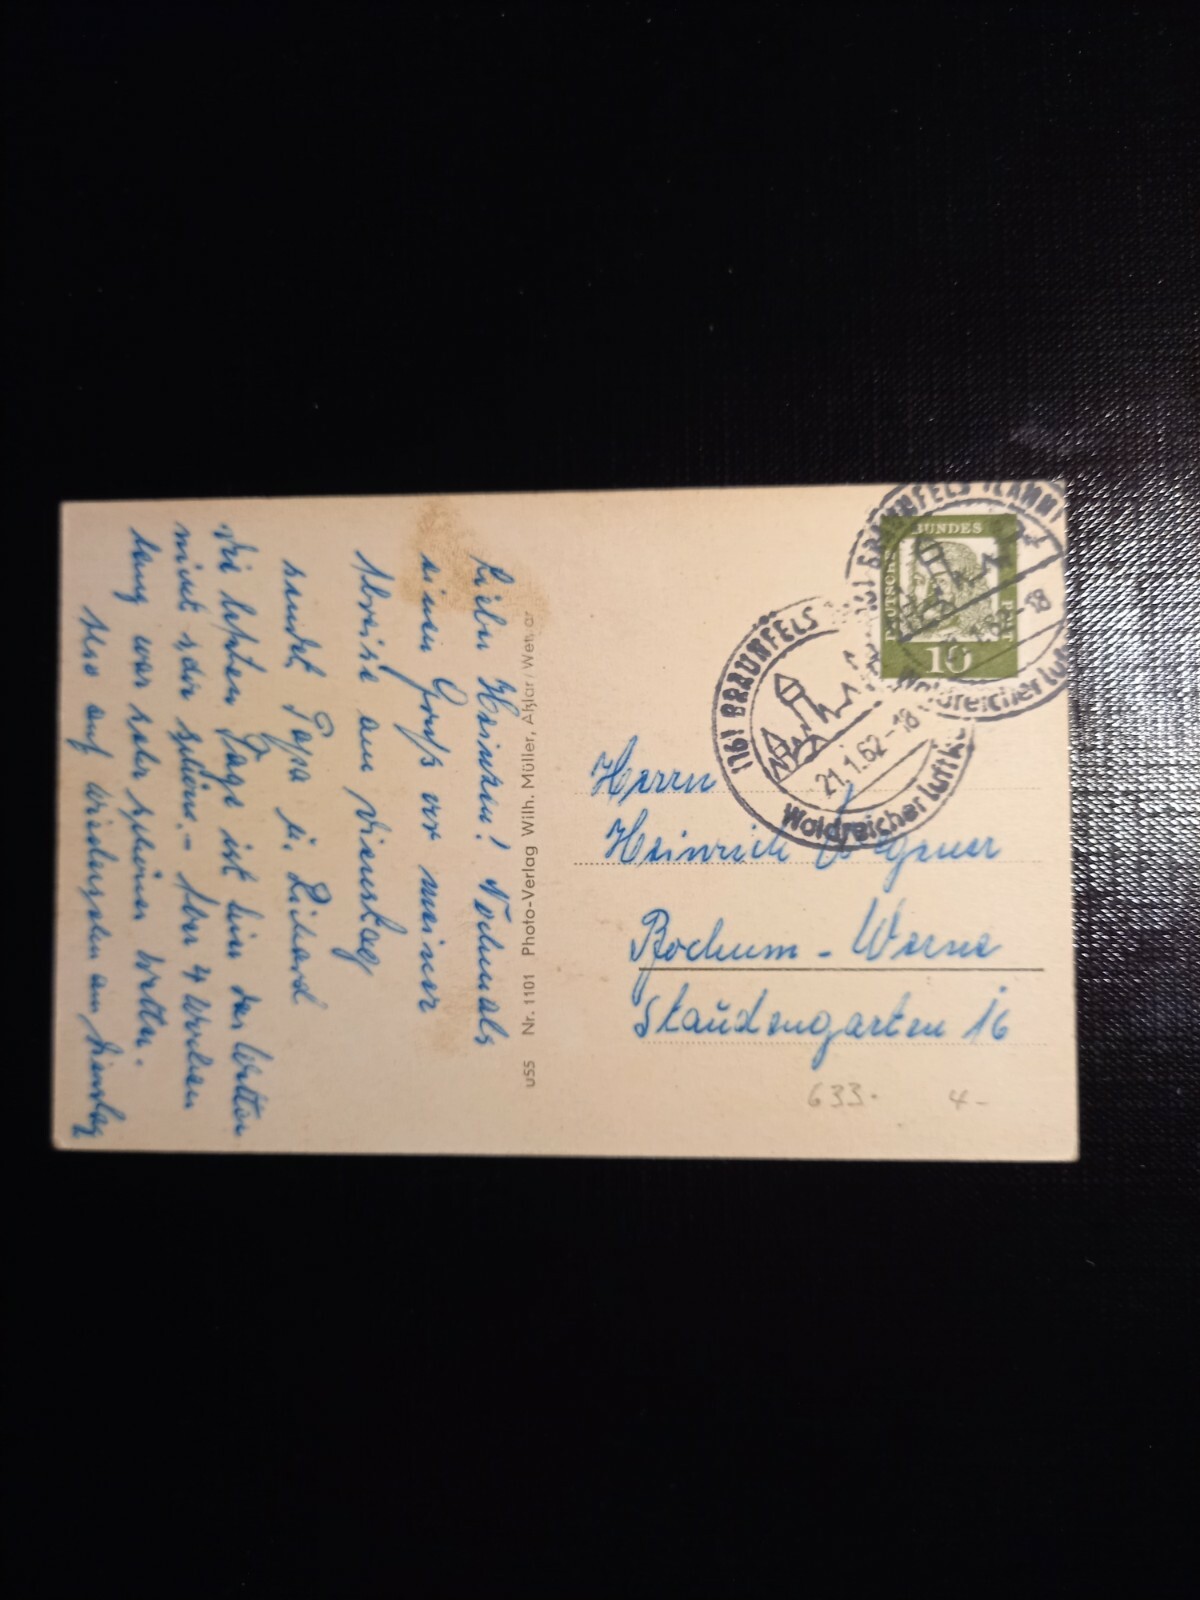 Lieber Heinzen! Nochmals
einen Gruß vor meiner
Abreise am Dienstag
sendet Papa u. Richard
Die letzten Tage ist hier das Wetter
nicht sehr schön. - Aber 4 Wochen
lang war sehr schönes Wetter.
Also auf Wiedersehen am Dienstag
U55 Nr. 1101 Photo-Verlag Wilh. Müller, Aßlar/Wetzlar
(16) BRAUNFELS
21.1.62-18
Waldreicher Luftk
(16) BRAUNFELS (LAHN)
-18
Waldreicher Luft
DEUTSCHE
BUNDES
POST
10
Herrn
Heinrich Wegener
Bochum - Werne
Staudengarten 16
633.
4-